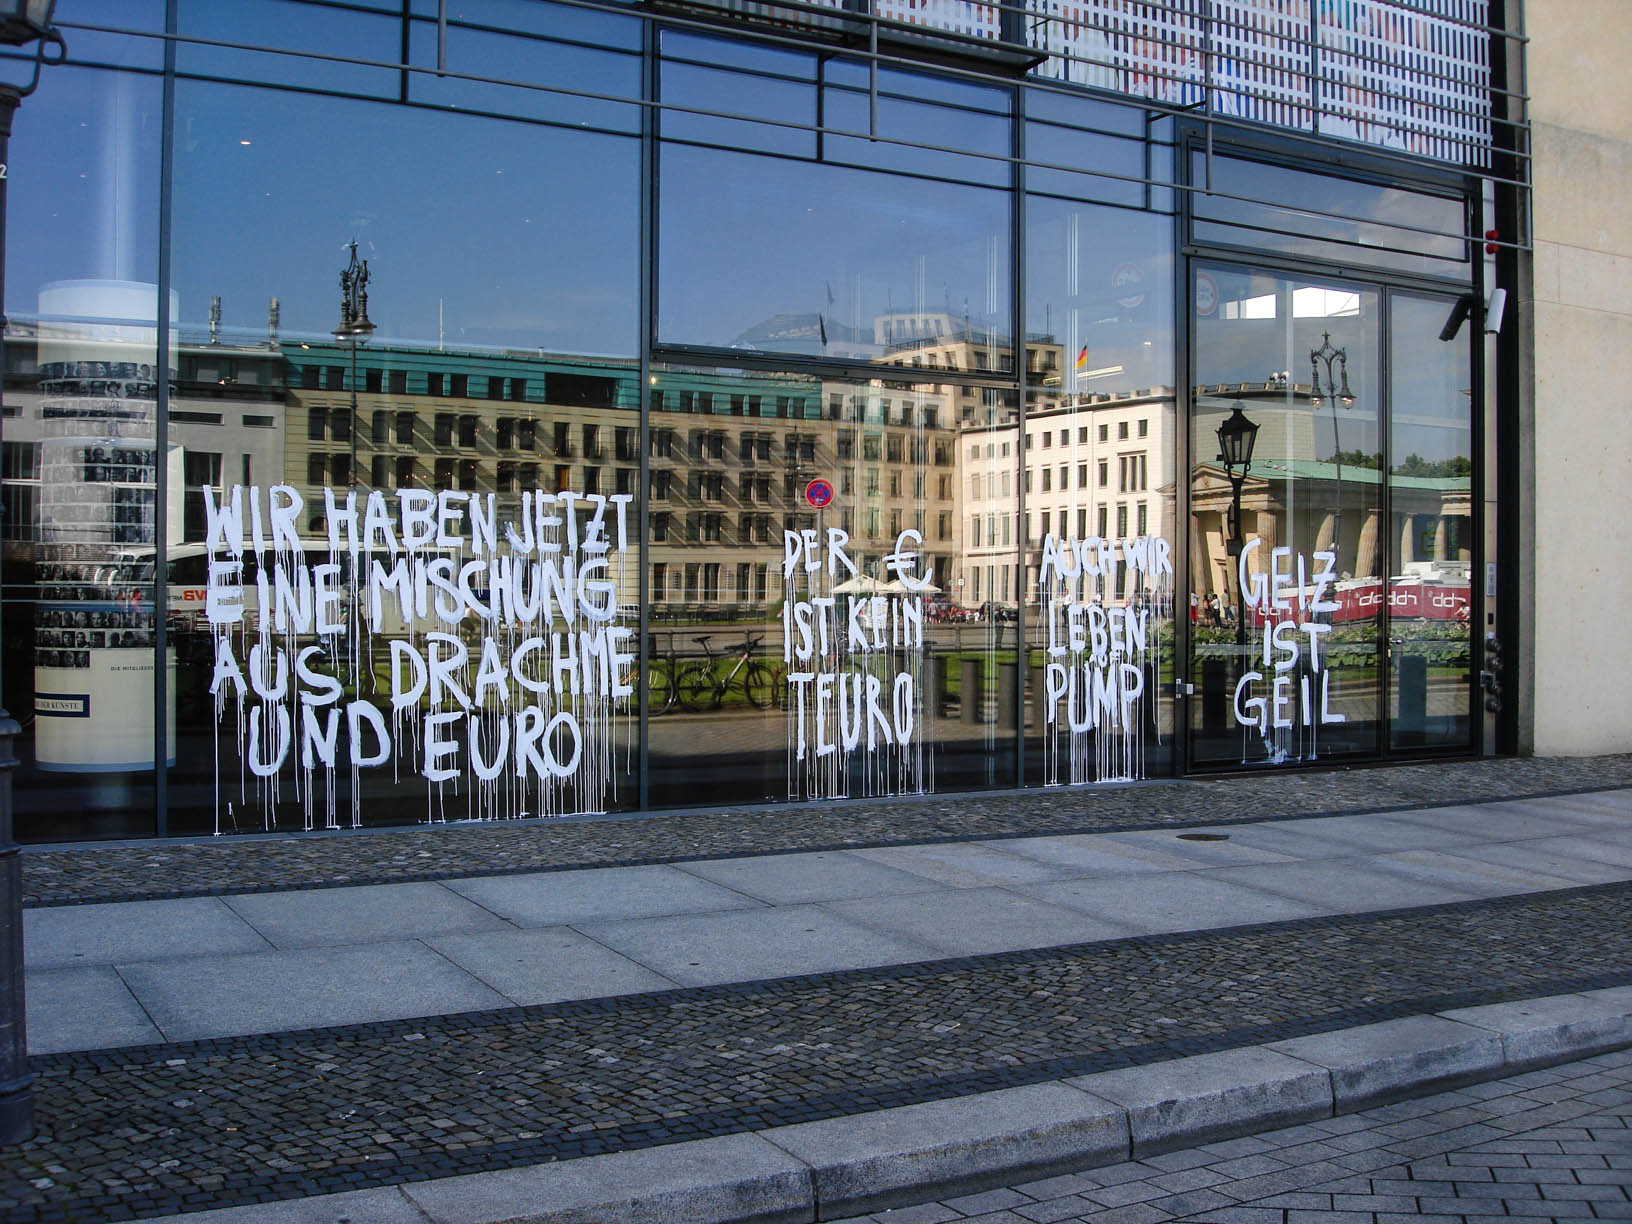 WIR HABEN JETZT
EINE MISCHUNG
AUS DRACHME
UND EURO
DER €
IST KEIN
TEURO
AUCH WIR
LEBEN
PUMP
GEIZ
IST
GEIL
DIE MITGLIEDER
DER KÜNSTE